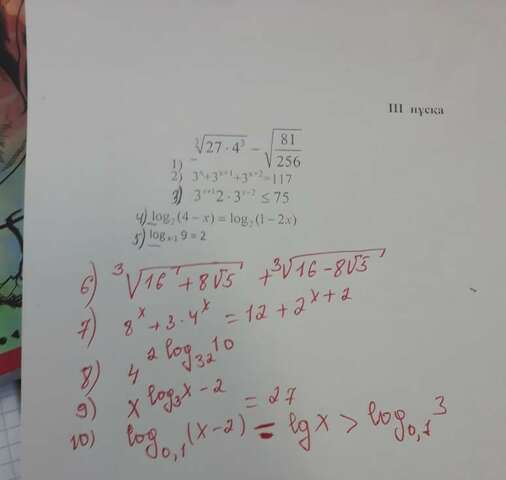 III нұсқа
1) ∛(27 · 4³) − √(81/256)
2) 3ˣ+3ˣ⁺¹+3ˣ⁺²=117
3) 3ˣ⁺¹2 · 3ˣ⁻² ≤ 75
4) log₂(4 − x) = log₂(1 − 2x)
5) logₓ₋₁ 9 = 2
6) ∛(16 + 8√5) + ∛(16 − 8√5)
7) 8ˣ + 3 · 4ˣ = 12 + 2ˣ⁺²
8) 4^(2log₃₂10)
9) x^(log₃x − 2) = 27
10) log₀,₁(x − 2) − lg x > log₀,₁3